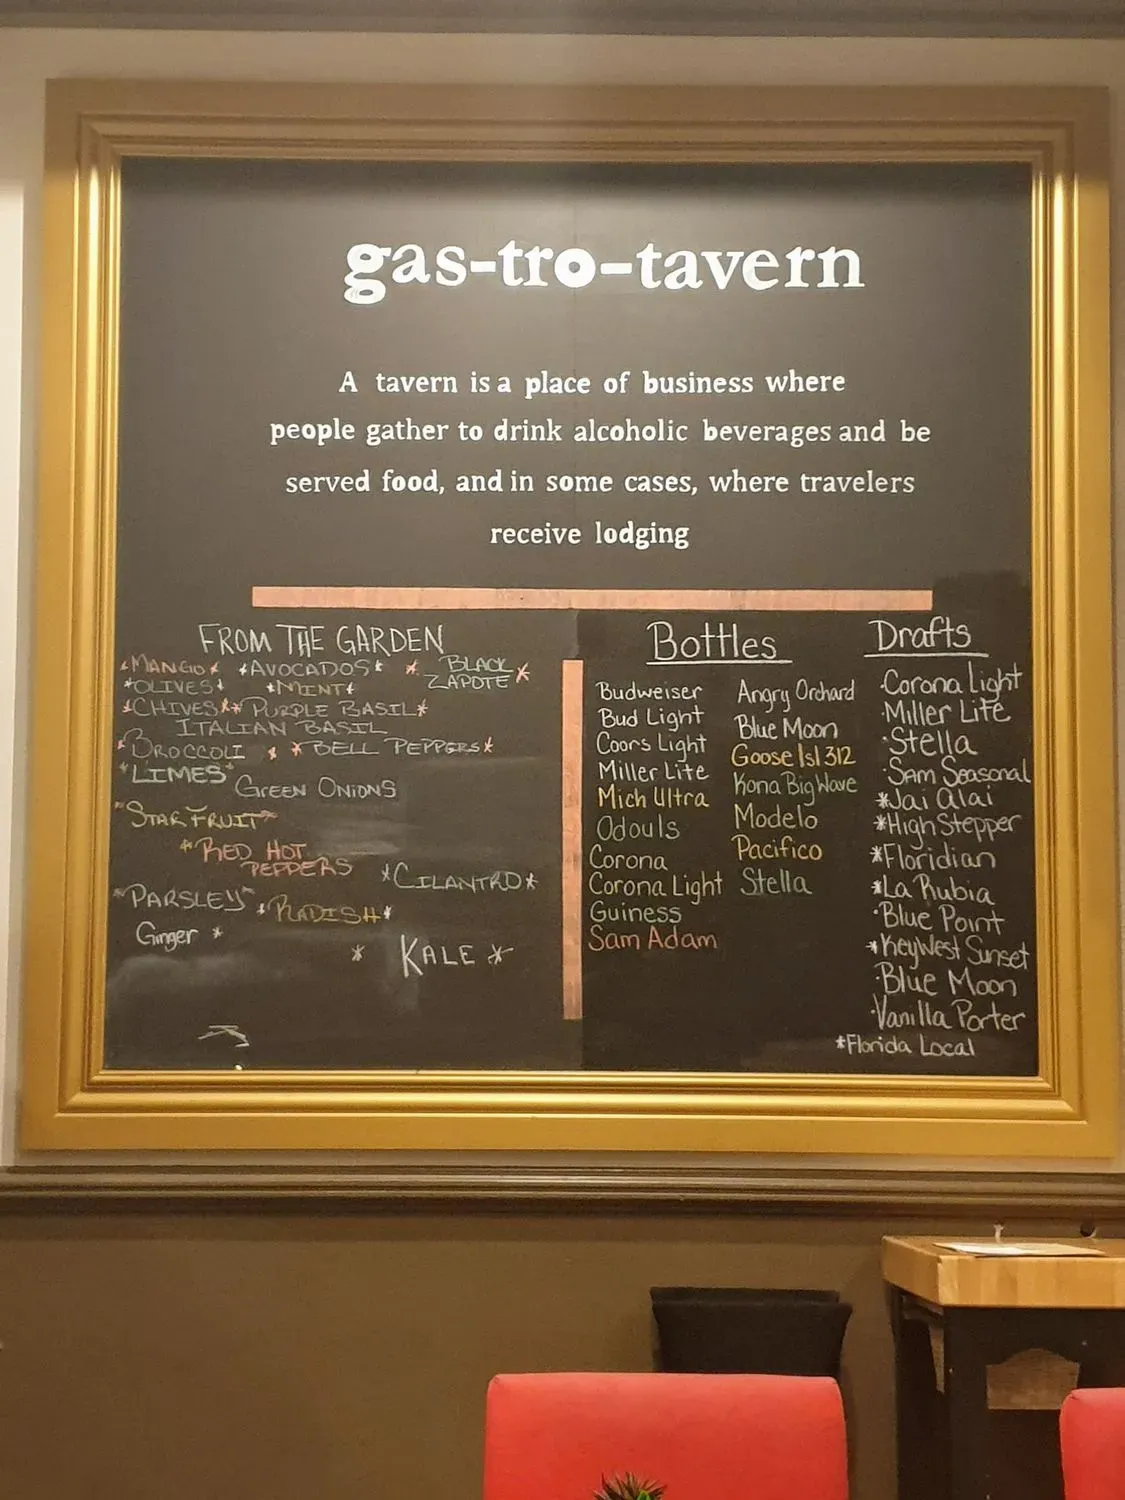 gas-tro-tavern
A tavern is a place of business where
people gather to drink alcoholic beverages and be
served food, and in some cases, where travelers
receive lodging
FROM THE GARDEN
*MANGO* *AVOCADOS* * BLACK ZAPOTE *
*OLIVES* *MINT*
*CHIVES* * PURPLE BASIL*
ITALIAN BASIL
*BROCCOLI * * BELL PEPPERS*
*LIMES*
GREEN ONIONS
*STAR FRUIT*
*RED HOT
PEPPERS
*CILANTRO*
*PARSLEY*
*RADISH*
Ginger *
* KALE *
Bottles
Budweiser
Bud Light
Coors Light
Miller Lite
Mich Ultra
Odouls
Corona
Corona Light
Guiness
Sam Adam
Angry Orchard
Blue Moon
Goose Isl 312
Kona Big Wave
Modelo
Pacifico
Stella
Drafts
·Corona Light
·Miller Lite
·Stella
·Sam Seasonal
*Jai Alai
*High Stepper
*Floridian
*La Rubia
·Blue Point
*Key West Sunset
·Blue Moon
·Vanilla Porter
*Florida Local